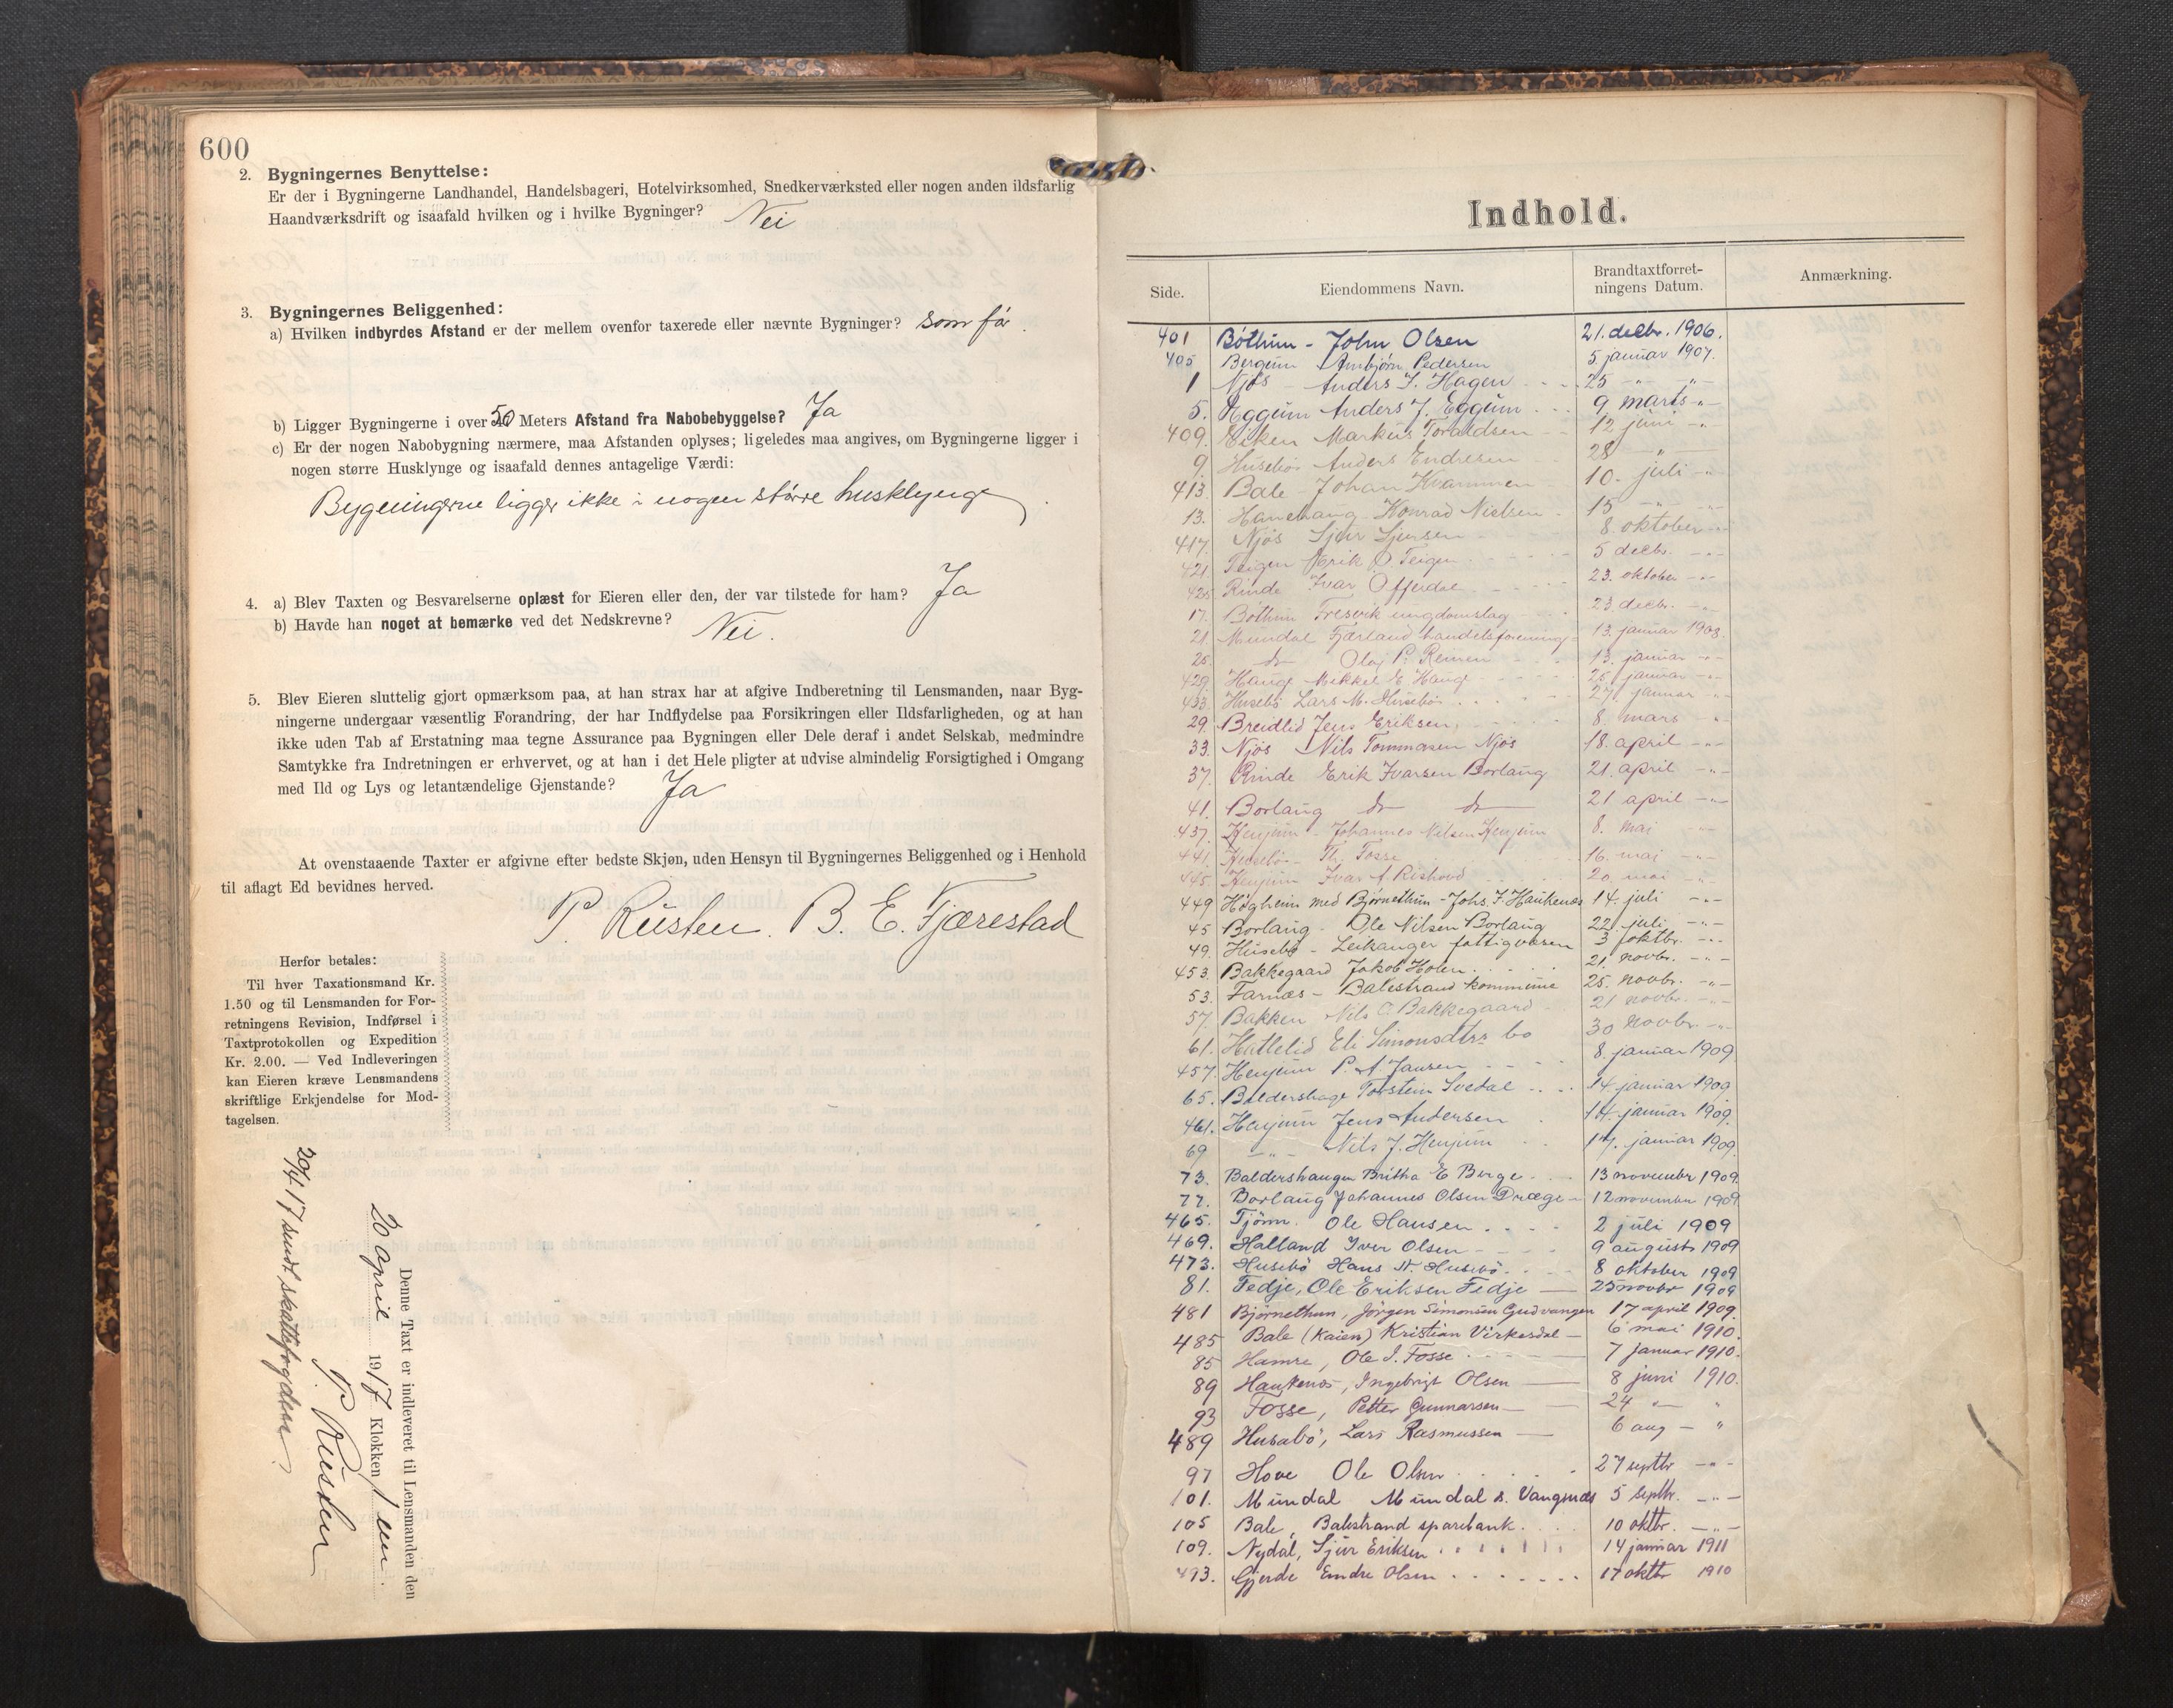 600
2. Bygningernes Benyttelse:
Er der i Bygningerne Landhandel, Handelsbageri, Hotelvirksomhed, Snedkerværksted eller nogen anden ildsfarlig
Haandværksdrift og isaafald hvilken og i hvilke Bygninger? Nei
3. Bygningernes Beliggenhed:
a) Hvilken indbyrdes Afstand er der mellem ovenfor taxerede eller nævnte Bygninger? som før.
b) Ligger Bygningerne i over 50 Meters Afstand fra Nabobebyggelse? Ja
c) Er der nogen Nabobygning nærmere, maa Afstanden oplyses; ligeledes maa angives, om Bygningerne ligger i
nogen større Husklynge og isaafald dennes antagelige Værdi:
Bygningerne ligger ikke i nogen større husklynge.
4. a) Blev Taxten og Besvarelserne oplæst for Eieren eller den, der var tilstede for ham? Ja
b) Havde han noget at bemærke ved det Nedskrevne? Nei.
5. Blev Eieren sluttelig gjort opmærksom paa, at han strax har at afgive Indberetning til Lensmanden, naar Byg-
ningerne undergaar væsentlig Forandring, der har Indflydelse paa Forsikringen eller Ildsfarligheden, og at han
ikke uden Tab af Erstatning maa tegne Assurance paa Bygningen eller Dele deraf i andet Selskab, medmindre
Samtykke fra Indretningen er erhvervet, og at han i det Hele pligter at udvise almindelig Forsigtighed i Omgang
med Ild og Lys og letantændelige Gjenstande? Ja
At ovenstaaende Taxter er afgivne efter bedste Skjøn, uden Hensyn til Bygningernes Beliggenhed og i Henhold
til aflagt Ed bevidnes herved.
P. Rusten. B. E. Fjærestad
Herfor betales:
Til hver Taxationsmand Kr.
1.50 og til Lensmanden for For-
retningens Revision, Indførsel i
Taxtprotokollen og Expedition
Kr. 2.00. — Ved Indleveringen
kan Eieren kræve Lensmandens
skriftlige Erkjendelse for Mod-
tagelsen.
Denne Taxt er indleveret til Lensmanden den
20 april 1917 Klokken 1 em.
P. Rusten
20/4 17 sendt skattefogden
Indhold.
Side. Eiendommens Navn. Brandtaxtforret-ningens Datum. Anmærkning.
401 Bøthun - John Olsen 21. decbr. 1906.
405 Bergum Arnbjørn Pedersen 5 januar 1907.
1 Njøs - Anders J. Hagen 25 -"- -"-
5. Eggum Anders J. Eggum 9 marts -"-
409. Eiken Markus Toraldsen 12 juni -"-
9. Husebø Anders Endresen 28 -"-
413. Bale Johan Kvammen 10. juli -"-
13. Hanehaug Konrad Nielsen 15 -"- -"-
417. Njøs Sjur Sjursen 8. oktober -"-
421. Teigen Erik O Teigen 5 decbr. -"-
425 Rinde Ivar Offerdal 23. oktober -"-
17. Bøthun Fresvik ungdomslag 23. decbr. -"-
21. Mundal Fjærland handelsforening 13. januar 1908.
25. do Olaf P. Reinen 13. januar -"-
429 Hauge Mikkel E Hauge 25. januar -"-
433. Husebø Lars M. Husebø 27. januar -"-
29. Breidlid Jens Eriksen 8. mars -"-
33. Njøs Nils Tommasen Njøs 18. april -"-
37. Rinde Erik Ivarsen Borlaug 21. april -"-
41. Borlaug do do 21 april -"-
437. Henjum - Johannes Nilsen Henjum 8. mai -"-
441. Husebø - Th. Fosse 16. mai -"-
445 Henjum Ivar A. Rishovd 20. mai -"-
449 Høgheim med Bjørnethun - Johs. J. Haukenæs 14. juli -"-
45 Borlaug - Ole Nilsen Borlaug 22. juli -"-
49. Husebø - Leikanger fattigvæsen 3 oktbr. -"-
453. Bakkegaard Jakob Holen 21. novbr. -"-
53. Farnæs - Balestrand kommune 25. novbr. -"-
57. Bakken Nils O Bakkegaard 21 novbr. -"-
61. Hatlelid Eli Simonsdtrs bo 30 novbr. -"-
457. Henjum P. A. Jansen 8. januar 1909
65. Baldershage Torstein Svedal 14 januar 1909
461. Henjum Jens Andersen 14. januar 1909.
69 -"- Nils J. Henjum 17. januar 1909.
73. Baldershaugen Britha E Berge 13 novembr 1909.
77. Borlaug Johannes Olsen Dræge 12 november 1909.
465. Tjønn. Ole Hansen 2 juli 1909
469. Halland Iver Olsen 9 augusts 1909
473. Husebø Hans N. Husebø 8 oktober 1909
81. Fedje, Ole Eriksen Fedje 25 novbr 1909
481 Bjørnethun, Jörgen Simonsen Gudvangen 17 april 1909.
485 Bale (Kaien) Kristian Virkesdal 6 mai 1910.
85 Hamre, Ole J. Fosse 7 januar 1910.
89 Haukenæs, Ingebrigt Olsen 8 juni 1910.
93 Fosse, Petter Gunnarsen 24 " "
489 Husabø, Lars Rasmussen 6 aug - "
97 Hove Ole Olsen 27 septbr -"-
101. Mundal Mundal s. Vangsnæs 5 septbr. -"-
105 Bale, Balestrand sparebank. 10 oktbr. -"-
109. Nydal, Sjur Eriksen 14 januar 1911
493. Gjerde Endre Olsen 17 oktbr 1910